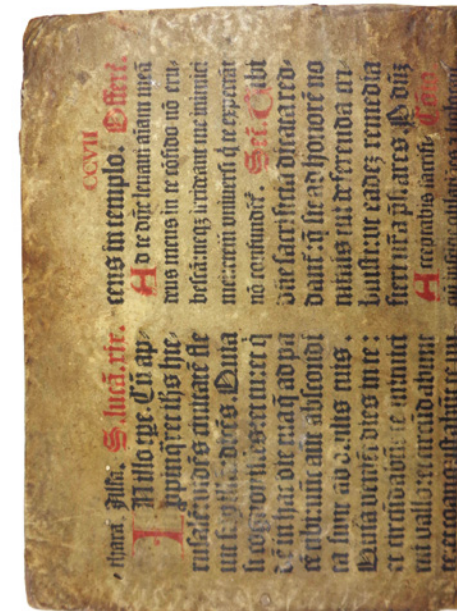 thara. Alla. S. lucā. xix.
IN illo tpe. Cū ap-
propinq̄ret ihs hie-
rusalē: vidēs ciuitatē fle
uit sup illā: dicēs. Quia
si cognouisses et tu: et q̄
dē in hac die tua q̄ ad pa
cē tibi: nūc aūt abscondi
ta sunt ab oculis tuis.
Quia veniēt dies in te:
et circūdabūt te inimici
tui vallo: et circūdabunt
te: et coangustabūt te
CCVII
tens in templo. Offert.
Ad te dn̄e leuaui aīam meā
deus meus in te cōfido nō eru-
bescā: neqz irrideant me inimici
mei: etem vniuersi q̄ te expectāt
nō confundēt. Scr̄. Tibi
dn̄e sacrificia dicata red-
dant: q̄ sic ad honorē no
minis tui deferenda tri-
buisti: ut eadez remedia
fieri nr̄a p̄stares. P dn̄z
Acceptabis sacrifi- Cōio